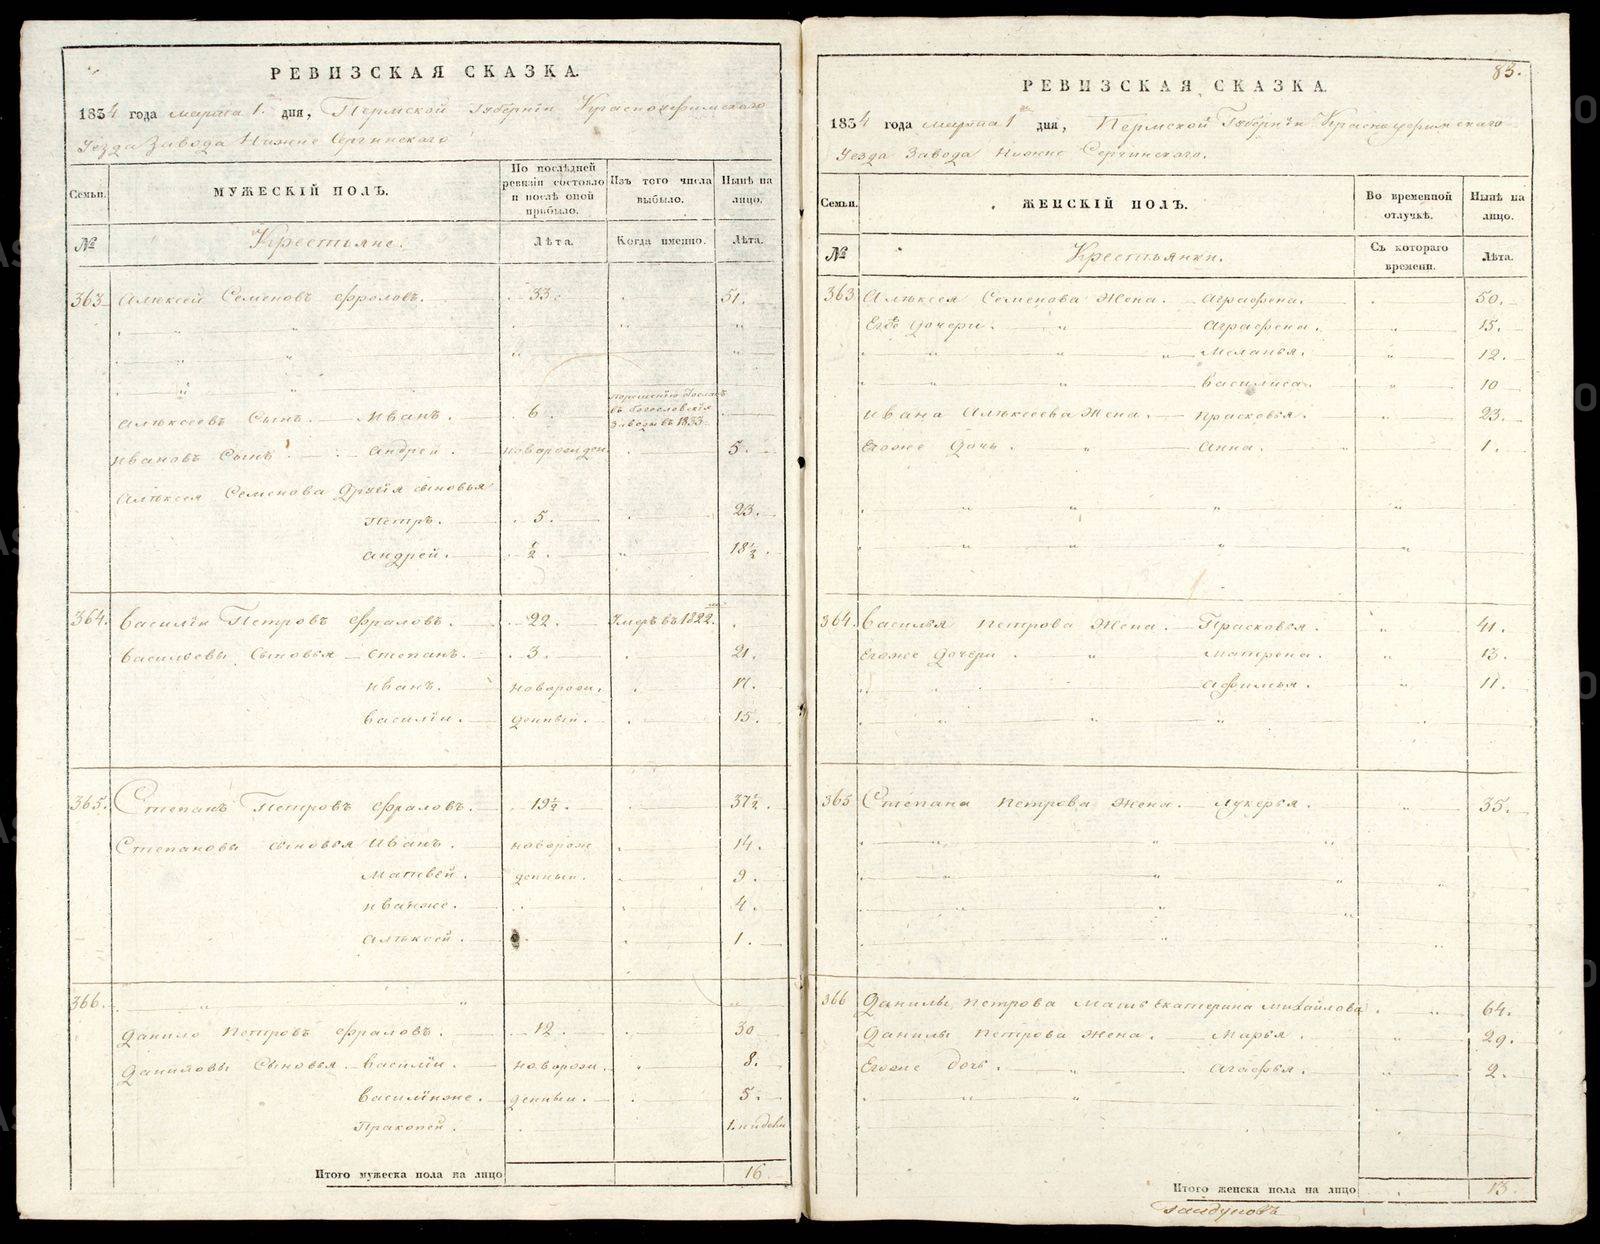 РЕВИЗСКАЯ СКАЗКА.
1834 года марта 1. дня, Пермской Губернїи Красноуфимскаго
Уезда Завода Нижне Сергинскаго
Семьи. МУЖЕСКІЙ ПОЛЪ. По послѣдней ревизіи состояло и послѣ оной прибыло. Изъ того числа выбыло. Нынѣ на лицо.
№ Крестьяне. Лѣта. Когда именно. Лѣта.
363 Алѣксей Семеновъ Фроловъ. 33. 51.
Алѣксеевъ Сынъ. Иванъ. 6. въ Богословскїя Заводы въ 1833
Ивановъ Сынъ Андрей. новорожден 5.
Алѣксея Семенова Другїя сыновья
Петръ. 5. 23.
Андрей. ½. 18½.
364. Василїй Петровъ Фраловъ. 22. Умеръ въ 1822.
Васильевы Сыновья Степанъ. 3. 21.
Иванъ. новорож. 17.
Василїй. денный. 15.
365. Степанъ Петровъ Фраловъ. 19½. 37½.
Степановы сыновья Иванъ. новорож 14.
Матвей. денныи. 9.
Иванже. 4.
Алѣксей. 1.
366.
Данило Петровъ Фраловъ. 12. 30
Даниловы Сыновья. Василїи. новорож. 8.
Василїйже. денныи. 5.
Пракопей. 1. нидели
Итого мужеска пола на лицо 16
83.
РЕВИЗСКАЯ СКАЗКА.
1834 года марта 1 дня, Пермской Губернїи Красноуфимскаго
Уезда Завода Нижне Сергинскаго.
Семьи. ЖЕНСКІЙ ПОЛЪ. Во временной отлучкѣ. Нынѣ на лицо.
№ Крестьянки. Съ котораго времени. Лѣта.
363 Алѣксея Семенова Жена. Аграфена. 50.
Его Дочери. Аграфена. 15.
Меланья. 12.
Василиса. 10
Ивана Алѣксеева Жена. Прасковья. 23.
Егоже Дочь. Анна. 1.
364. Василья Петрова Жена. Прасковья. 41.
Егоже Дочери Матрена. 13.
Афимья. 11.
365 Степана Петрова Жена. Лукерья. 35.
366 Данилы Петрова Мать Екатерина Михайлова. 64.
Данилы Петрова Жена. Марья. 29.
Егоже дочь. Агафья. 2.
Итого женска пола на лицо 13.